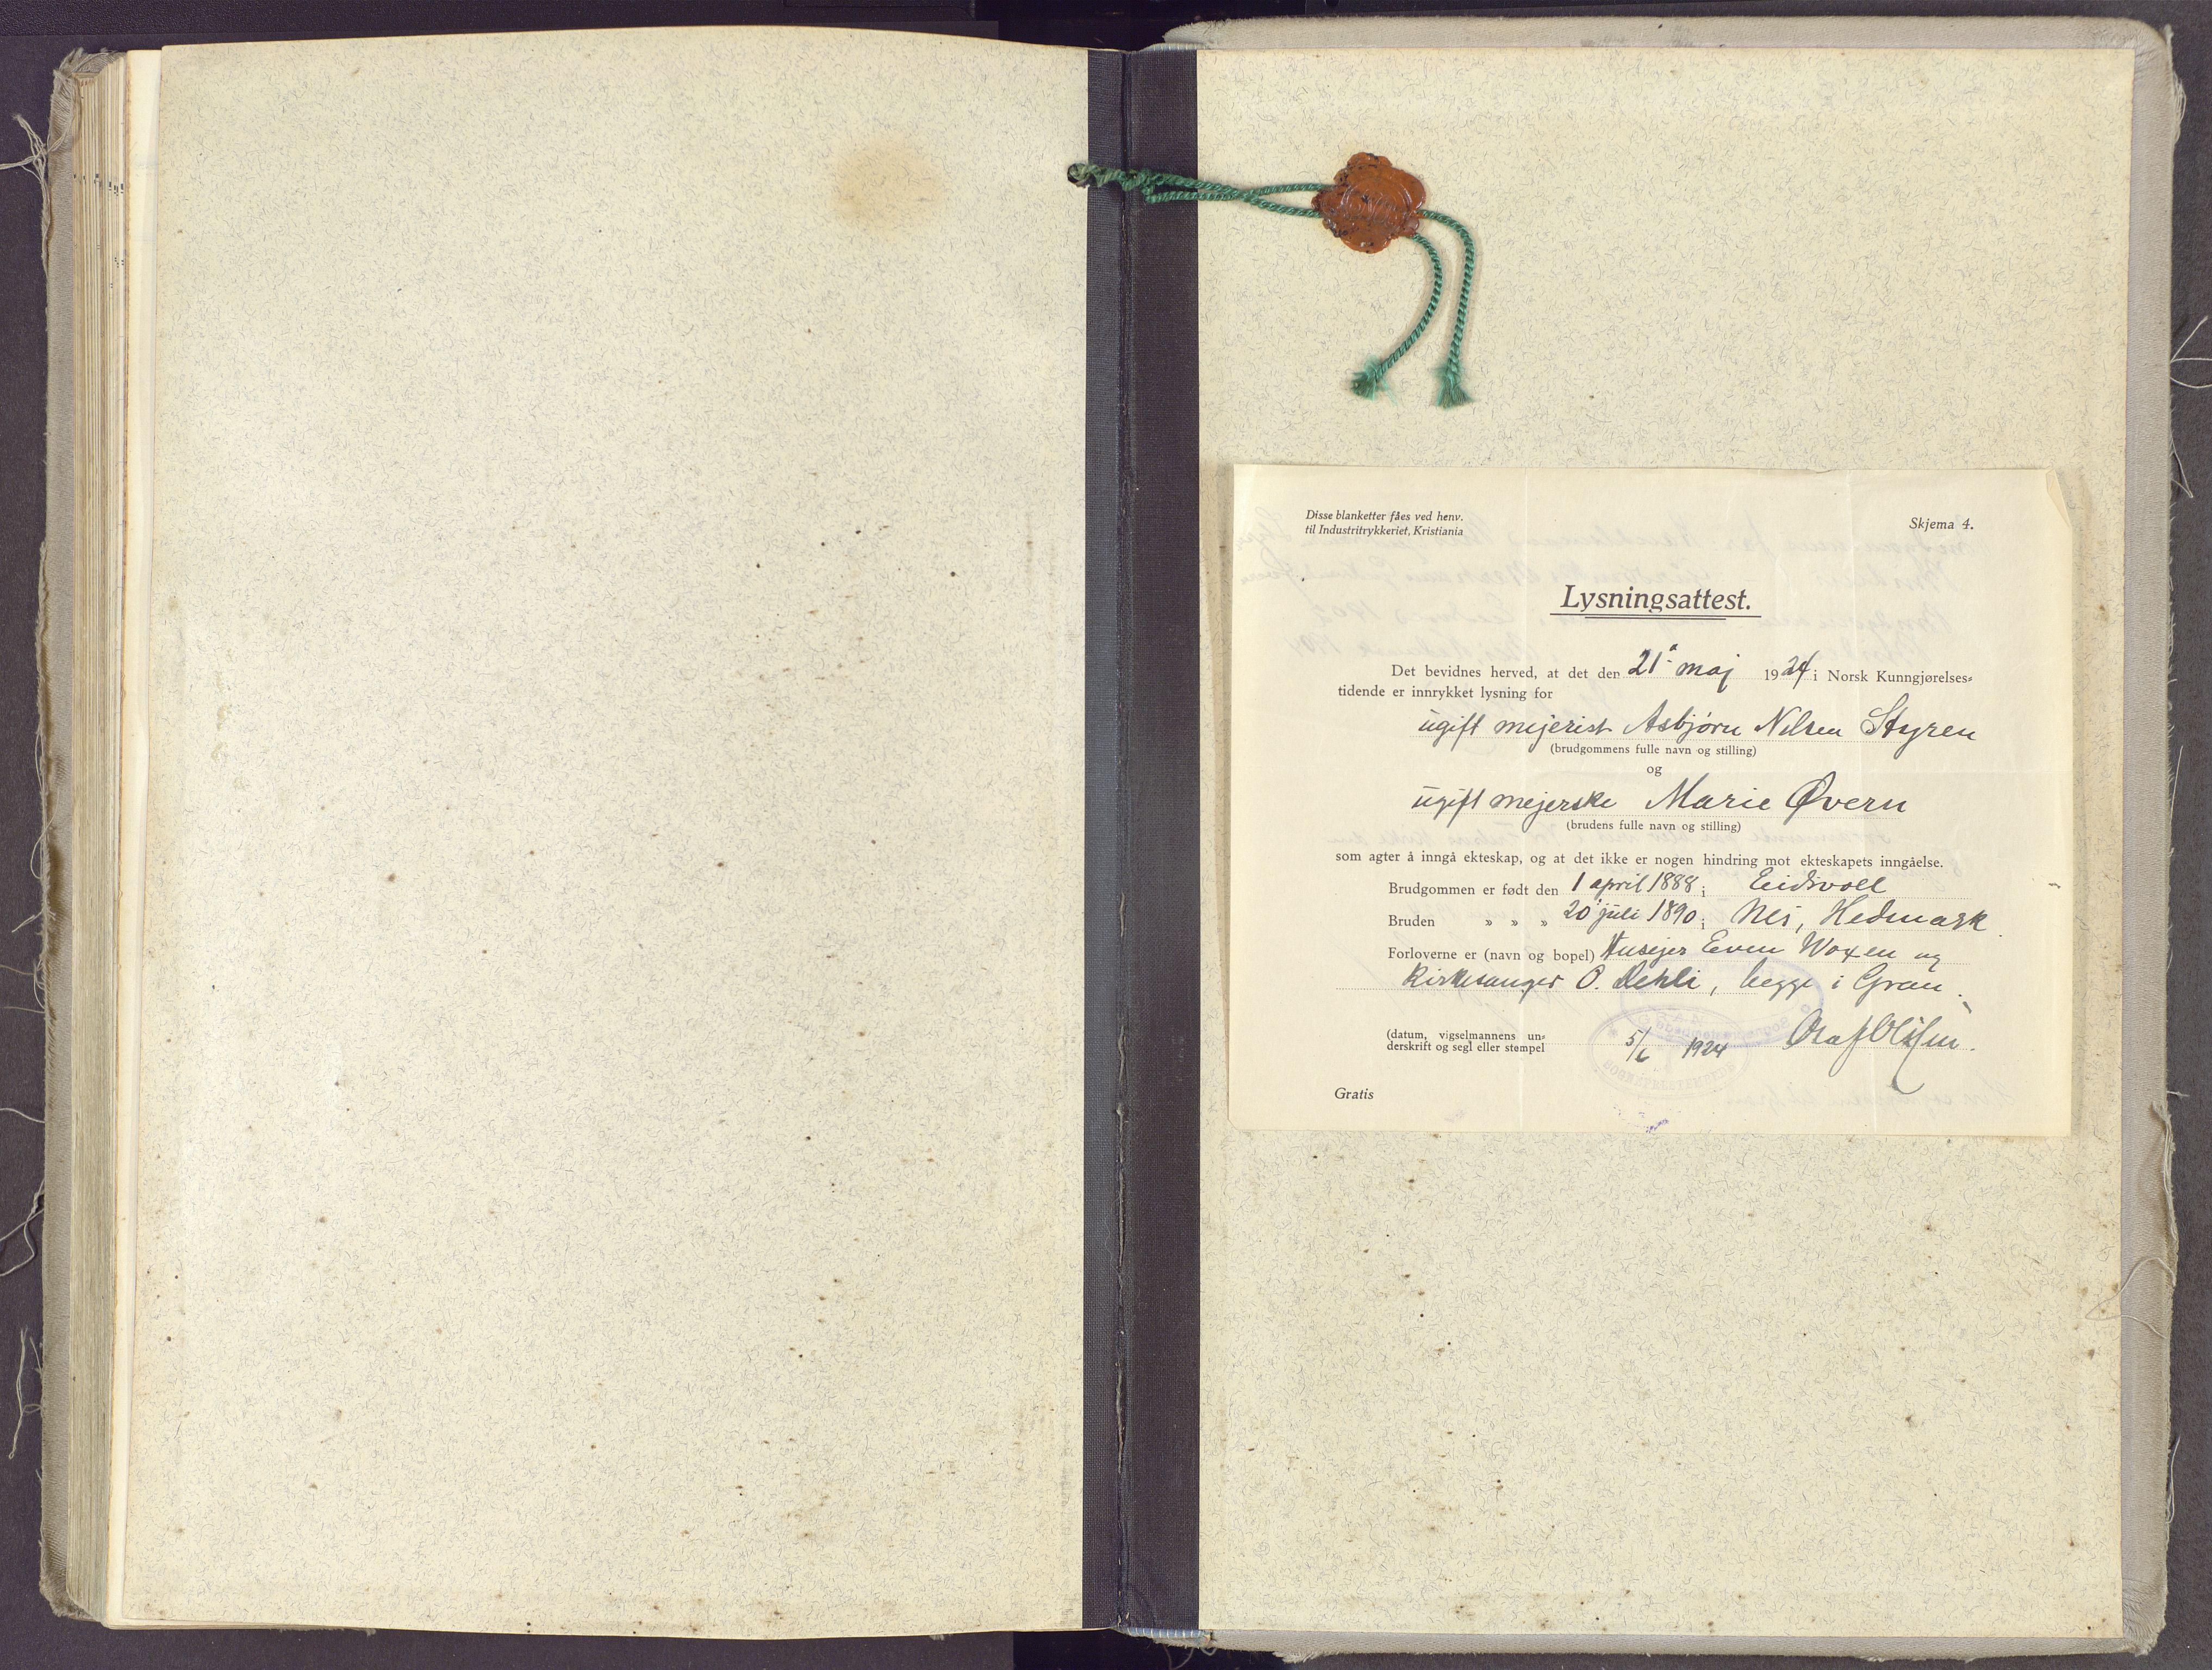 Disse blanketter fåes ved henv.
til Industritrykkeriet, Kristiania
Skjema 4.
Lysningsattest.
Det bevidnes herved, at det den 21. maj 1924 i Norsk Kunngjørelses=
tidende er innrykket lysning for
ugift mejerist Asbjørn Nilsen Styren
(brudgommens fulle navn og stilling)
og
ugift mejerske Marie Øvern
(brudens fulle navn og stilling)
som agter å inngå ekteskap, og at det ikke er nogen hindring mot ekteskapets inngåelse.
Brudgommen er født den 1 april 1888 i Eidsvoll
Bruden » » » 20 juli 1890 i Nes, Hedmark.
Forloverne er (navn og bopel) Husejer Even Woxen og
Kirkesanger O. Dehli, begge i Gran.
(datum, vigselmannens un=
derskrift og segl eller stempel
5/6 1924 Olaf
Gratis